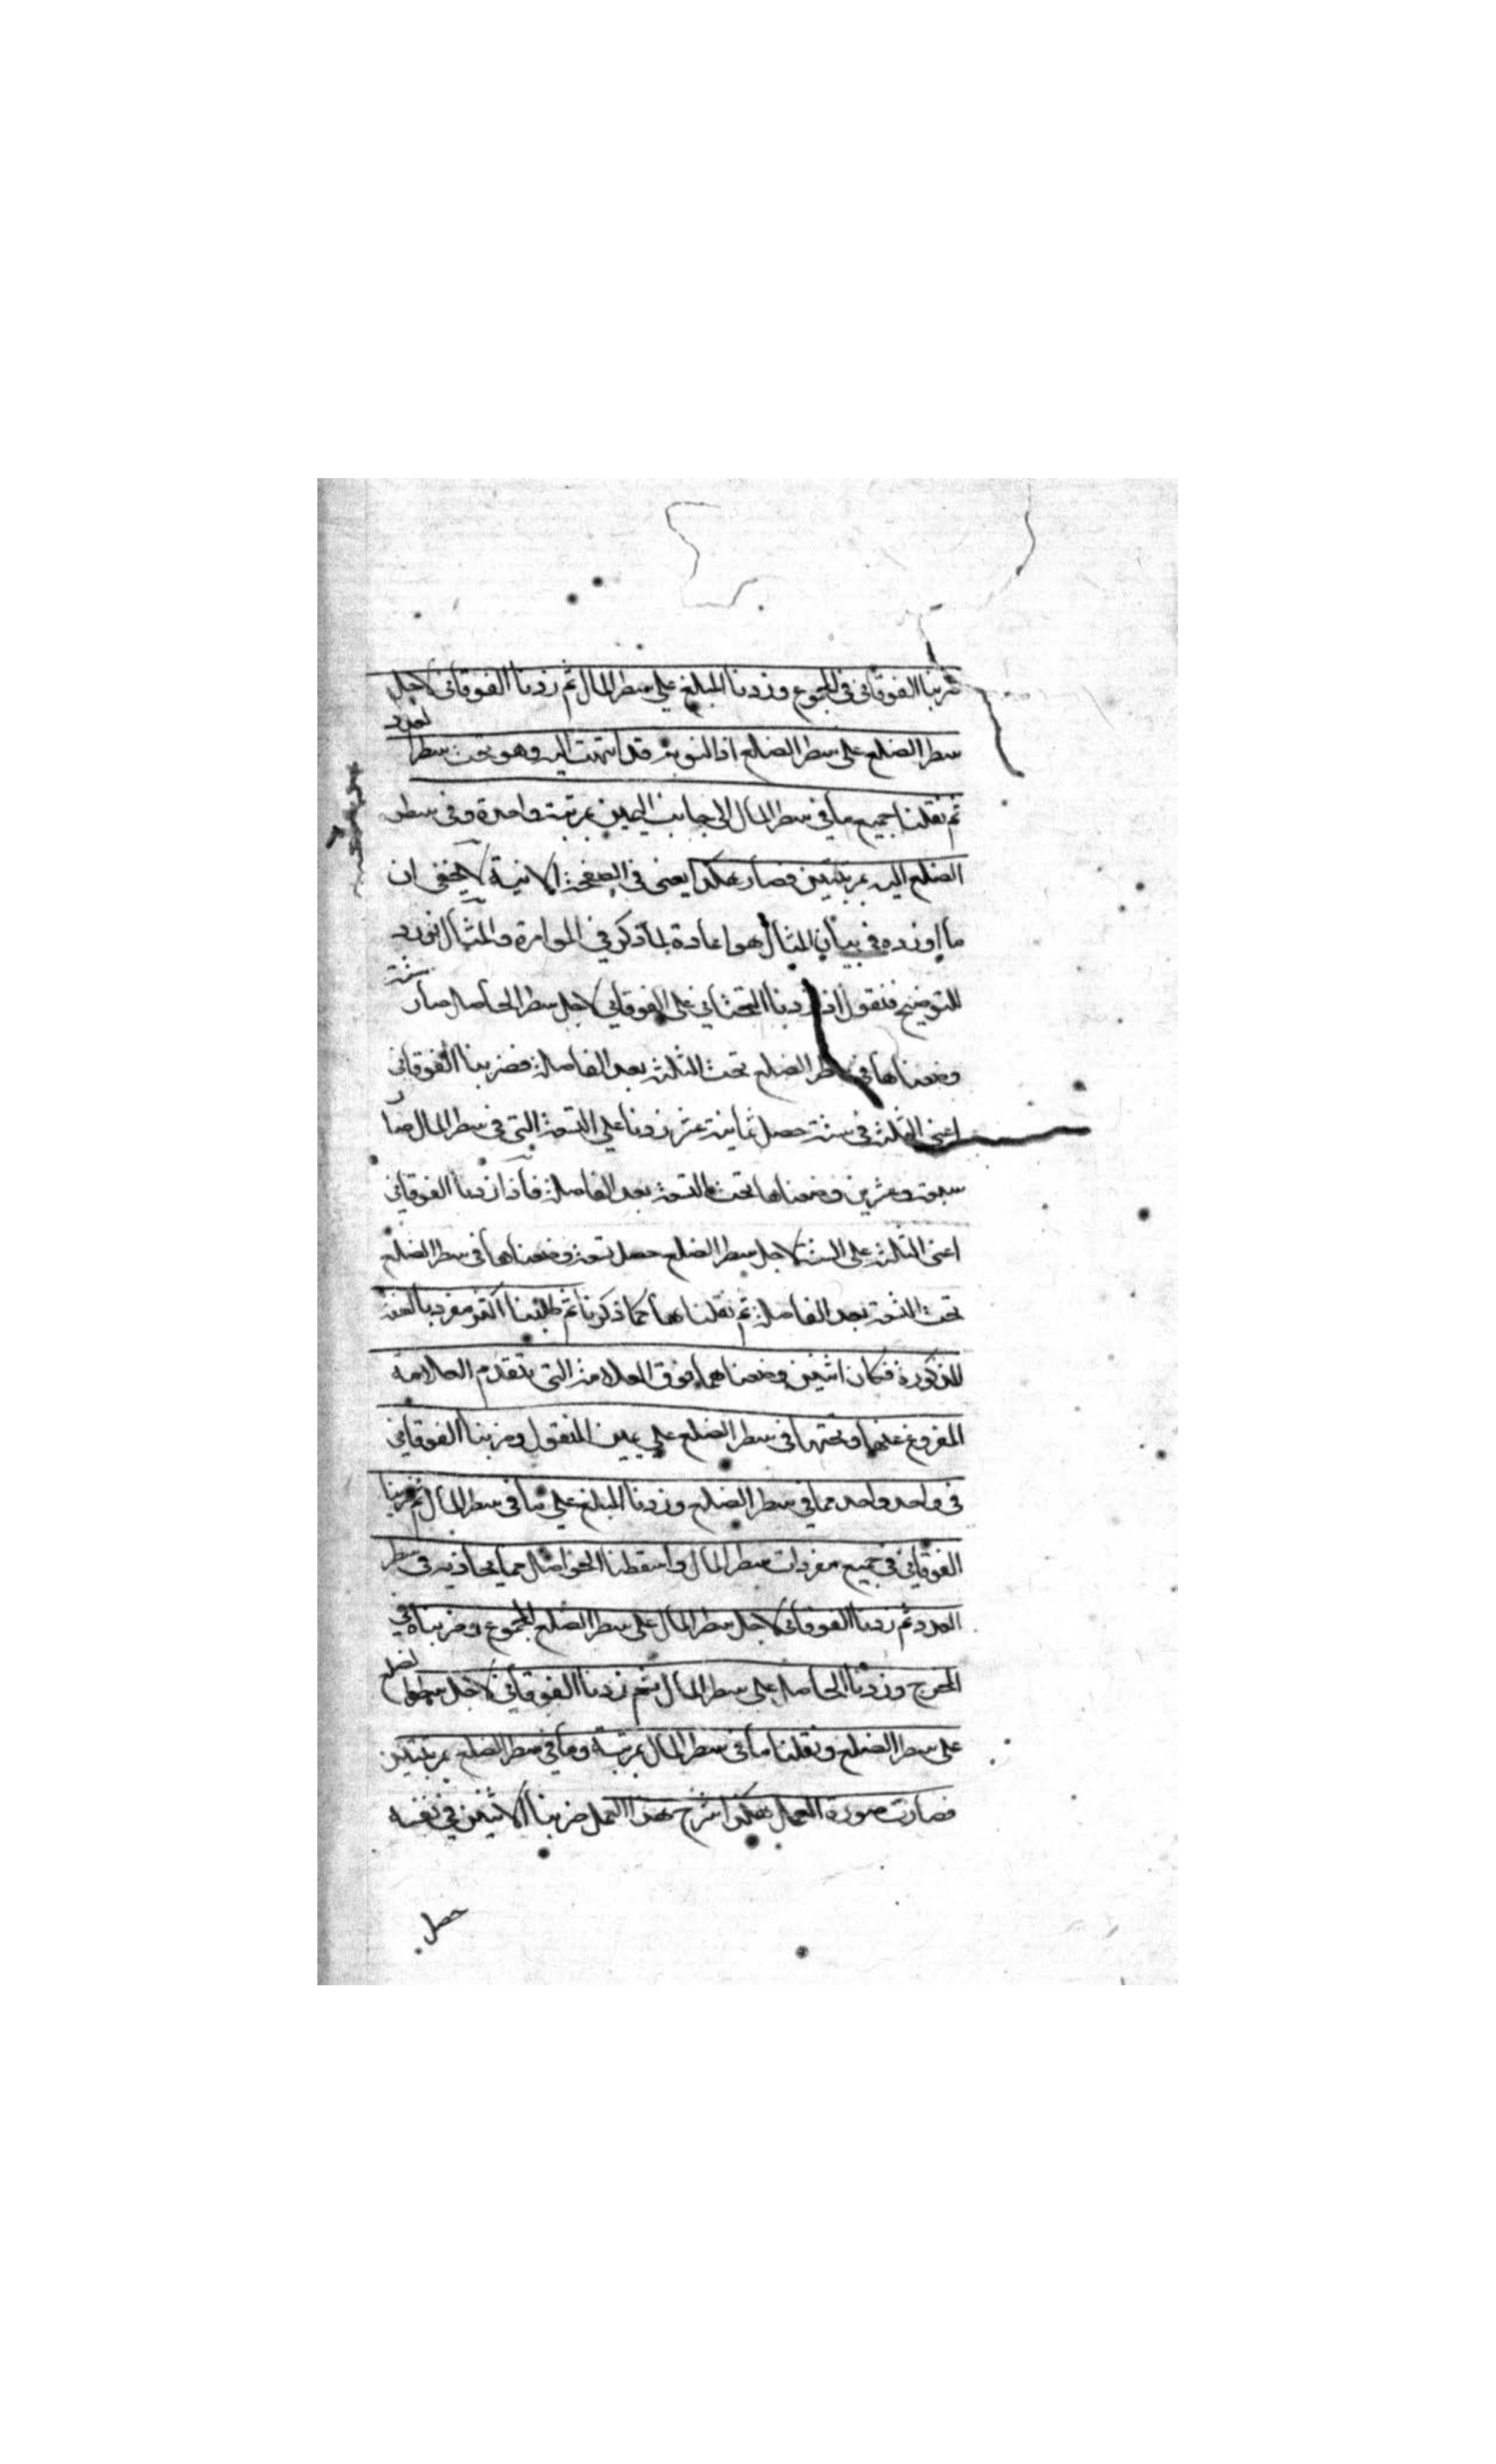 ضربنا الفوقاني في المجموع وزدنا المبلغ على سطر المال ثم زدنا الفوقاني لاجل
سطر الضلع على سطر الضلع اذ النوبة قد انتهت اليه وهو تحت سطر العدد
ثم نقلنا جميع ما في سطر المال الى جانب اليمين بمرتبة واحدة وفي سطر
الضلع اليه بمرتبتين فصار هكذا يعنى في الصفحة الاتية لا يخفى ان
ما اورده في بيان المثال هو اعادة لما ذكر في الموامرة والمثال نورد
للتوضيح فنقول اذا زدنا التحتاني على الفوقاني لاجل سطر الحاصل صار ستة
وضعناها في سطر الضلع تحت الثلثة بعد الفاصلة فضربنا الفوقاني
اعنى الثلثة في ستة حصل ثمانية عشر زدنا على التسعة التي في سطر المال صار
سبعة وعشرين وضعناها تحت التسعة بعد الفاصلة فاذا زدنا الفوقاني
اعنى الثلثة على الستة لاجل سطر الضلع حصل تسعة وضعناها في سطر الضلع
تحت الستة بعد الفاصلة ثم نقلناها كما ذكرنا ثم طلبنا اكثر مفرد بالصفة
المذكورة فكان اثنين وضعناهما فوق العلامة التي يتقدم العلامة
المفروغ عنها وتحتها في سطر الضلع على يمين المنقول وضربنا الفوقاني
في واحد واحد مما في سطر الضلع وزدنا المبلغ على ما في سطر المال ثم ضربنا
الفوقاني في جميع مفردات سطر المال واسقطنا الحواصل مما يحاذيه في سطر
العدد ثم زدنا الفوقاني لاجل سطر المال على سطر الضلع المجموع وضربناه في
المخرج وزدنا الحاصل على سطر المال ثم زدنا الفوقاني لاجل سطر الضلع
على سطر الضلع ونقلنا ما في سطر المال بمرتبة وما في سطر الضلع بمرتبتين
فصارت صورة العمل هكذا شرح هذا العمل ضربنا الاثنين في نفسه
حصل